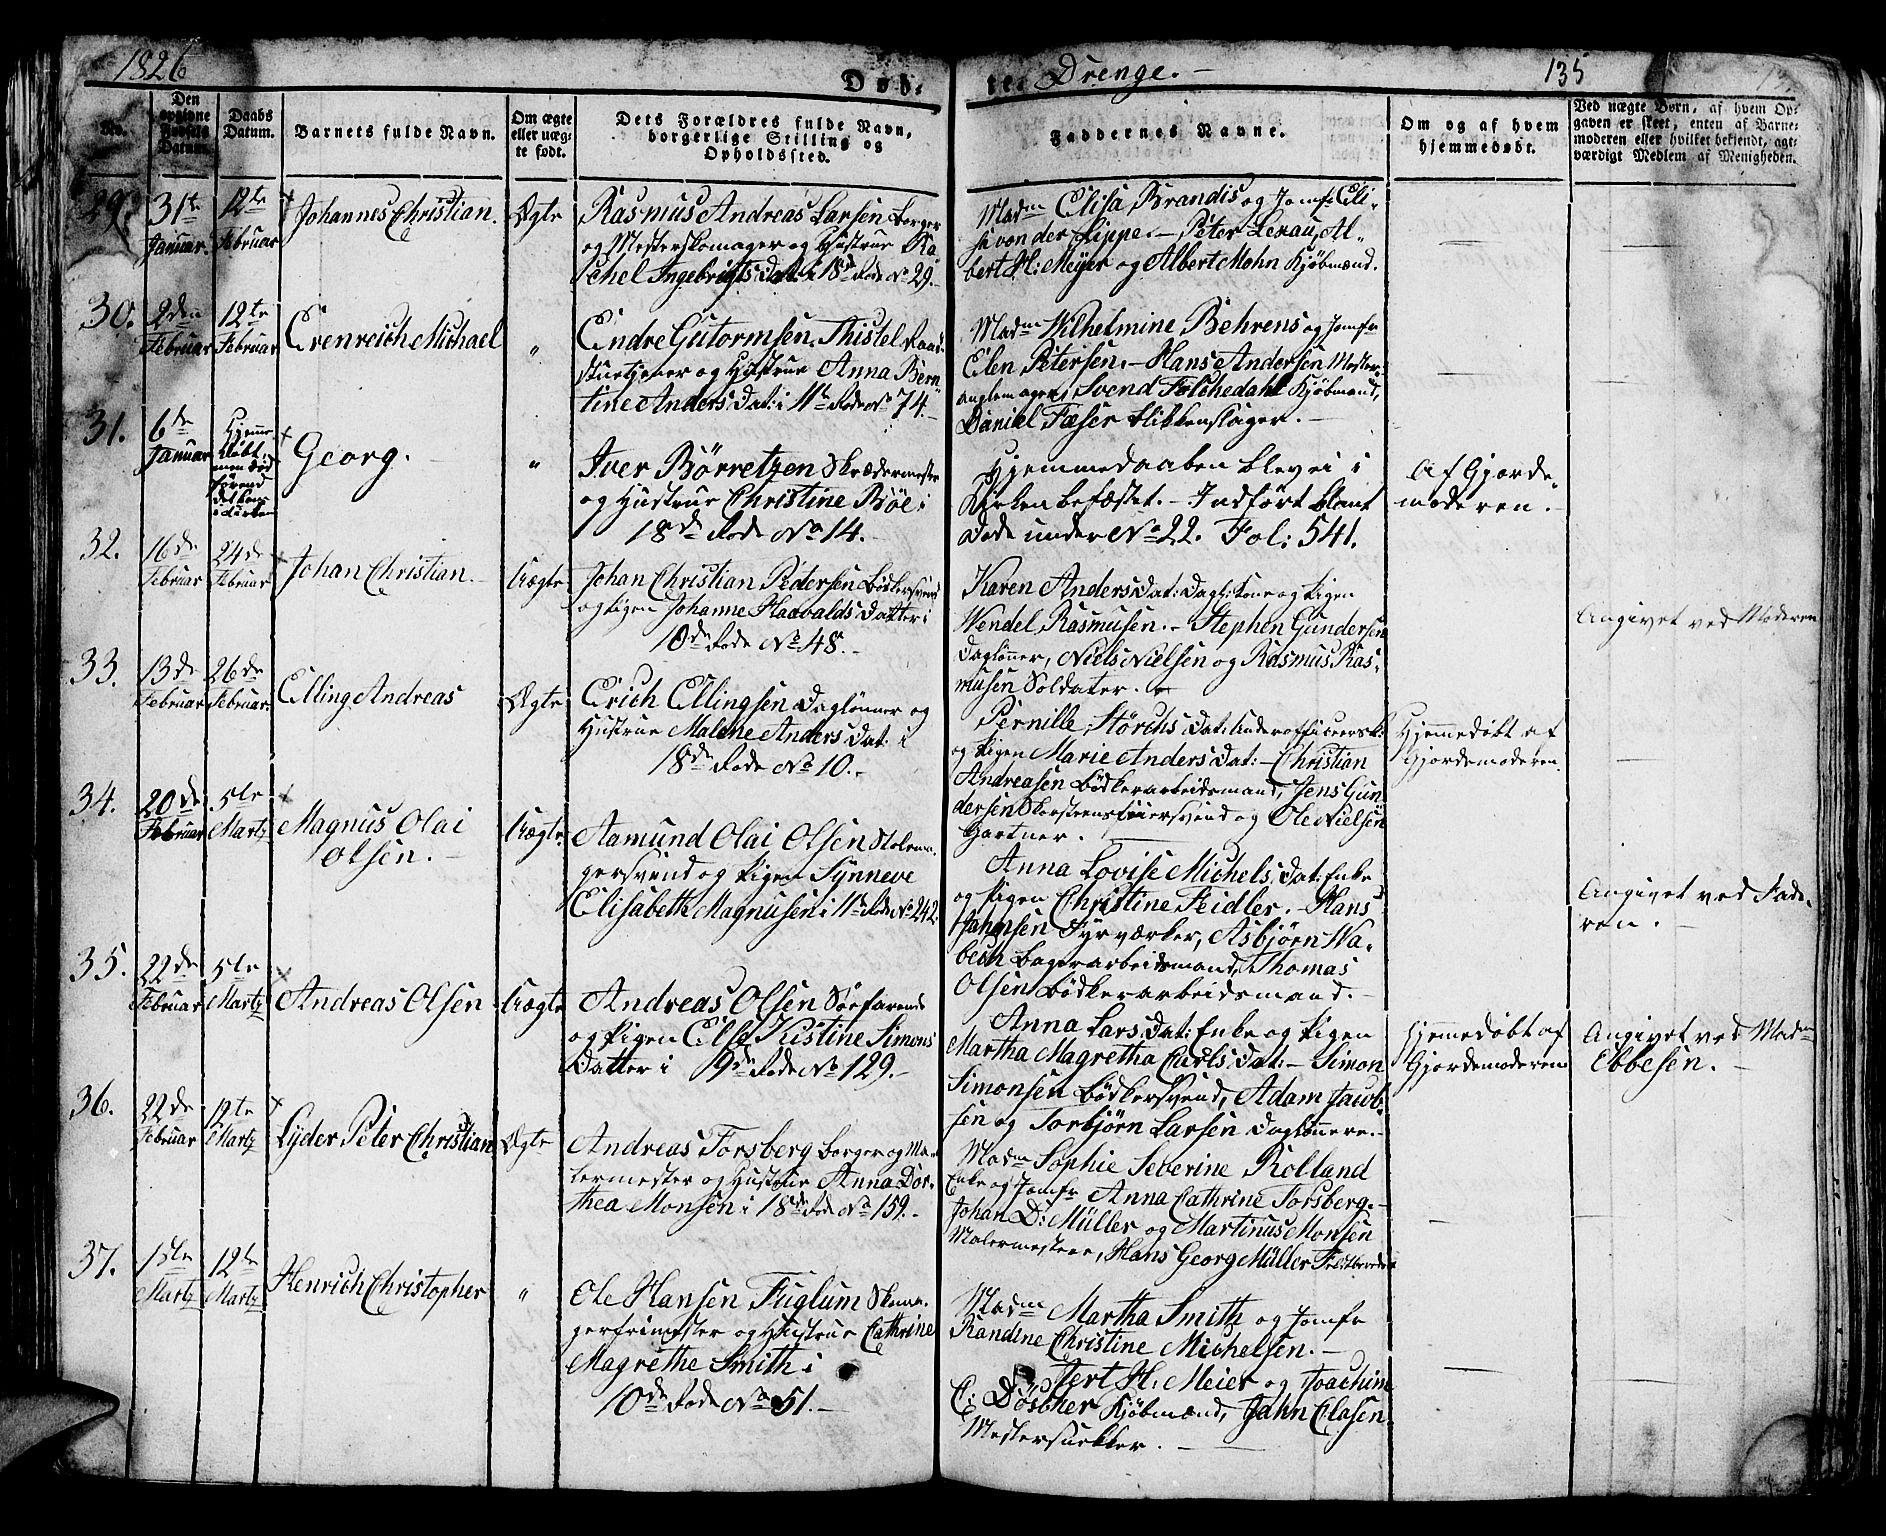 1826
Døb- te. Drenge.
135
No.
Den opgivne Fødsels Datum.
Daabs Datum.
Barnets fulde Navn.
Om ægte eller uægte født.
Dets Forældres fulde Navn, borgerlige Stilling og Opholdssted.
Faddernes Navne.
Om og af hvem hjemmedøbt.
Ved uægte Børn, af hvem Opgaven er skeet, enten af Barnemoderen eller hvilket bekjendt, agtværdigt Medlem af Menigheden.
29. 31te Januar. 12te Februar Johannes Christian. Ægte
Rasmus Andreas Larsen Borger
og Mesterskomager og Hustrue Ra
chel Ingebrigts Dat: i 18de Rode No 29.
Madm Elisa Brandis og Jomf: Eli-
se von der Lippe. Peter Lexau, Al-
bert H: Meyer og Albert Mohn Kjøbmænd.
30. 2den Februar 12te Februar Erenreich Michael "
Endre Gutormsen Thistel Raad-
stuetjener og Hustrue Anna Bern
tine Anders Dat: i 11te Rode No 74.
Madm Wilhelmine Behrens og Jomfr
Elen Petersen. Hans Andersen Mester-
Svend Folchedahl Kjøbmand,
Daniel Fæser Blikkenslager.
31. 6te Januar Hjemmedøbt, men død førend det kom i Kirken Georg. "
Iver Børretzen Skrædermester
og Hustrue Christine Bøe i
18de Rode No 14.
Hjemmedaaben blev ei i
Kirken befæstet. Indført blant
Døde under No 22. Fol: 541.
Af Gjorde-
moderen.
32. 16de Februar 24de Februar Johan Christian. Uægte
Johan Christian Pedersen Bødkersvend
og Pigen Johanne Haavalds Datter i
10de Rode No 48.
Karen Anders Dat: Dagl: Kone og Pigen
Wendel Rasmusen. Stephen Gundersen
Daglønner, Niels Nielsen og Rasmus Ras-
musen Soldater.
Angivet ved Moderen
33. 13de Februar 26de Februar. Elling Andreas Ægte
Erich Ellingsen Daglønner og
Hustrue Malene Anders Dat: i
18de Rode No 10.
Pernille Størchs Dat: Underofficeersk:
og Pigen Marie Anders Dat: Christian
Andreasen Bødkerarbeidsmand, Jens Gun
dersen Skorsteensfeiersvend og Ole Nielsen
Gartner.
Hjemmedøbt af
Gjordemoderen.
34. 20de Februar 5te Martz Magnus Olai
Olsen. Uægte
Aamund Olai Olsen Stolema-
gersvend og Pigen Synneve
Elisabeth Magnusen i 11te Rode No 242.
Anna Lovise Michels Dat: Enke
og Pigen Christine Feidler. Hans
Johnsen Fyrværker, Asbjørn Wa-
Bagerarbeidsmand, Thomas
Olsen Bødkerarbeidsmand.
Angivet ved Fade-
ren.
35. 22de Februar 5te Martz Andreas Olsen Uægte
Andreas Olsen Søefarende
og Pigen Else Kistine Simons
Datter i 9de Rode No 129.
Anna Lars Dat: Enke og Pigen
Martha Magretha Carls Dat: Simon
Simonsen Bødkersvend, Adam Jacob-
sen og Torbjørn Larsen Daglønnere.
Hjemmedøbt af
Gjordemoderen
Angivet ved Madm
Ebbesen.
36. 22de Februar 12te Martz Lyder Peter Christian Ægte
Andreas Forsberg Borger og Ma-
lermester og Hustrue Anna Dor-
thea Monsen i 18de Rode No 159.
Madm Sophie Severine Rolland
Enke og Jomfr Anna Cathrine Forsberg.
Johan D: Müller og Martinus Monsen
Malermestere, Hans Georg Müller
37. 1ste Martz 12te Martz Henrich Christopher "
Ole Hansen Fuglum Skoma-
gerfrimester og Hustrue Cathrine
Magrethe Smith i
10de Rode No 51.
Madm Martha Smith og Jomfr
Randine Christine Michelsen.
H: Meier og Joachim
C: Döscher Kjøbmænd, Jahn Clasen
Mestersnekker.